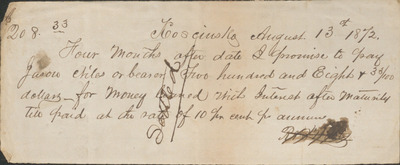 208.33 Kosciusko August 13th 1872.
Four Months after date I promise to pay
Jason Niles or bearer Two hundred and Eight & 33/100
dollars for Money loaned with Interest after Maturity
till paid at the rate of 10 pr cent pr annum
Settled